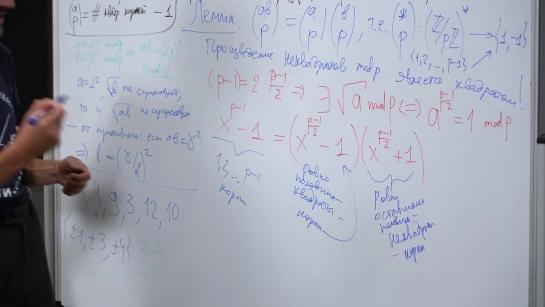 (a/p) = # квадр корней − 1
a=α² mod p
b=β² mod p ⇒ ab=(αβ)² mod p
a=α², √b не существует,
то и √ab не существует
— от противного: если ab=γ²
⇒ b = (γ/α)²
4, 9, 3, 12, 10
{±1, ±3, ±4} 2·5
Лемма. (ab/p) = (a/p)(b/p), т.е. (*/p): (ℤ/pℤ)* → {1,-1}
{1,2,…,p-1}
Произведение неквадратов mod p является квадратом!
(p-1)=2·(p-1)/2 ⇒ ∃ √a mod p ⇔ a^((p-1)/2) = 1 mod p
x^(p-1) − 1 = (x^((p-1)/2) − 1)(x^((p-1)/2) + 1)
1,2,…,p-1
корни
Ровно
половина —
квадраты —
корни
Ровно
оставшаяся
половина —
неквадраты
— корни